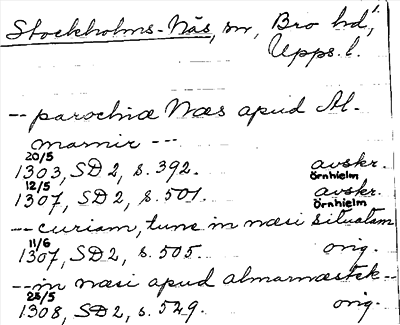 Stockholms-Näs, sn, Bro hd,
Upps. l.
-- parochiæ Næs apud Al-
marnir ---
20/5
1303, SD 2, s. 392. avskr.
Örnhielm
12/5
1307, SD 2, s. 501. avskr.
Örnhielm
-- curiam, tunc in næsi situatam
11/6
1307, SD 2, s. 505. orig.
-- in næsi apud almarnæstek --
25/5
1308, SD 2, s. 529. orig.